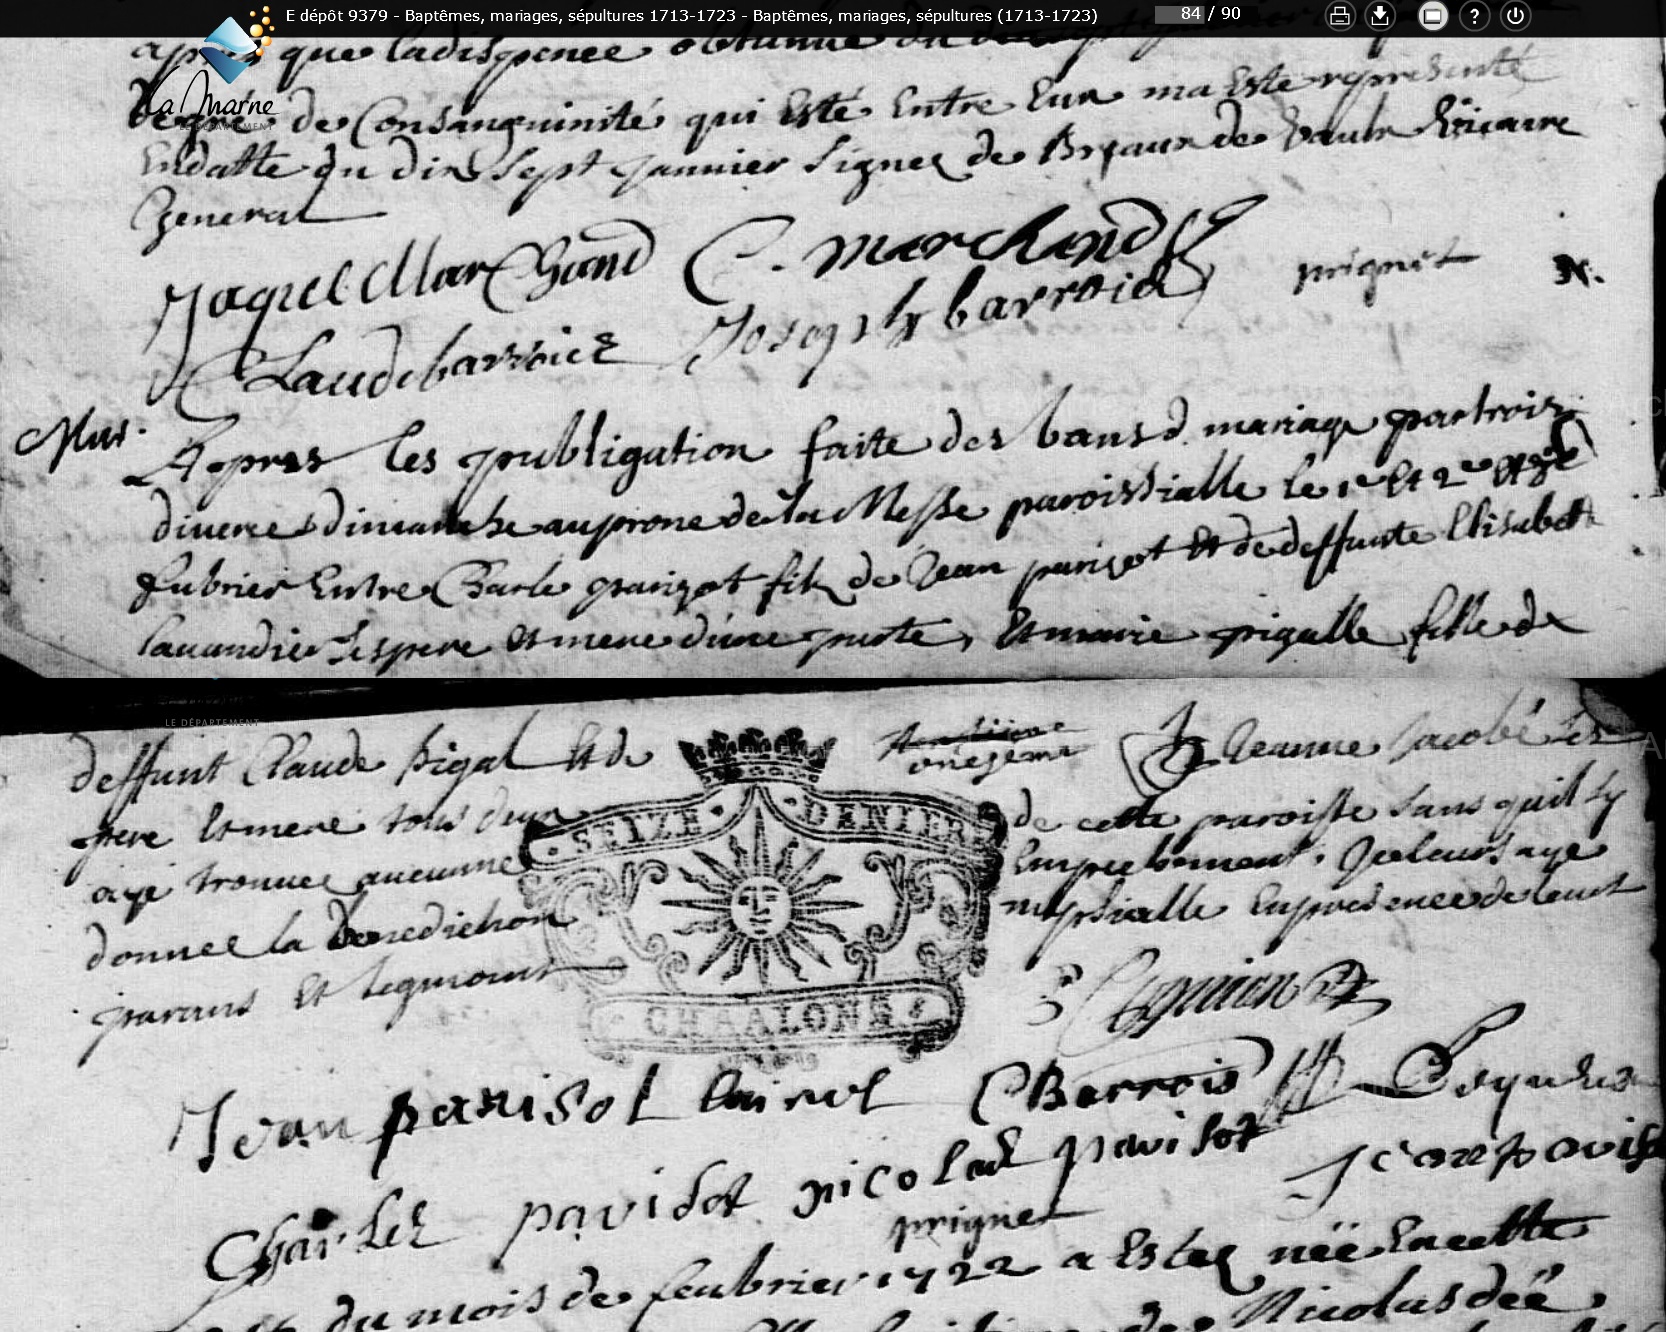 E dépôt 9379 - Baptêmes, mariages, sépultures 1713-1723 - Baptêmes, mariages, sépultures (1713-1723)
84 / 90
La Marne
LE DÉPARTEMENT
que la dispence obtenue du
de Consanguinité qui Este Entre Eux ma Este representé
En datte du dix sept janvier signez de Bejaux de Vicaire
General
Jaque Marchand C. Marchand
prignet N.
Claude barroiez Joseph barroiez
Mar.
Apres les publigation faite des bans d. mariage par trois
diverce dimanche au prone de la Messe paroissialle le 1e Et 2e Et 3e
feubrier Entre Charle parizot fils de Jean parizot Et de deffunte Elisabeth
lauandier ses pere et mere d'une parte, Et marie pigalle fille de
LE DÉPARTEMENT
deffunt Claude pigal Et de
onzeseme
Jeanne Jacobé ses
pere Et mere tous deux
de cette paroisse sans quil sy
SEIZE DENIERS
aye trouuez aucunne
Empechement. Je leurs aye
donnee la Benediction
nuptialle En presence de leurs
parans Et tegmoins
CHAALONS
Jean parisot C Barrois
Charlez parisot nicolas parisot
Jean parisot
prignet
du mois de feubrier 1722 a Estez néé En cette
Nicolas déé